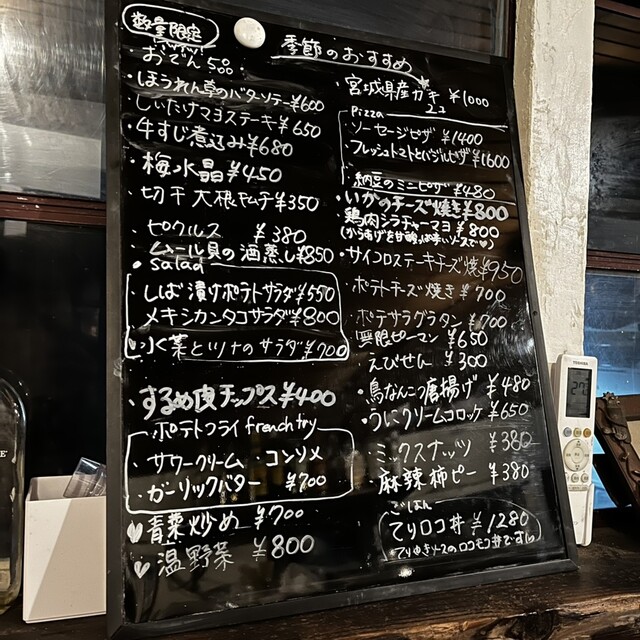 数量限定
おでん 500
・ほうれん草のバターソテー¥600
・しいたけマヨステーキ¥650
・牛すじ煮込み¥680
・梅水晶¥450
・切干大根キムチ¥350
・ピクルス ¥380
・ムール貝の酒蒸し¥850
・salad
・しば漬けポテトサラダ¥550
メキシカンタコサラダ¥800
水菜とツナのサラダ¥700
・するめ皮チップス¥400
・ポテトフライ french fry
・サワークリーム ・コンソメ
・ガーリックバター ¥700
青菜炒め ¥700
温野菜 ¥800
季節のおすすめ
・宮城県産カキ ¥1000
2コ
Pizza
・ソーセージピザ ¥1400
・フレッシュトマトとバジルピザ¥1600
・納豆のミニピザ ¥480
・いかのチーズ焼き¥800
・鶏肉シラチャーマヨ ¥800
(からあげを甘酸っぱ辛いソースで♡)
・サイコロステーキチーズ焼¥950
・ポテトチーズ焼き¥700
・ポテサラグラタン ¥700
無限ピーマン ¥650
・えびせん ¥300
・鳥なんこつ唐揚げ ¥480
・うにクリームコロッケ¥650
・ミックスナッツ ¥380
・麻辣柿ピー ¥380
ごはん
てりロコ丼 ¥1280
・てりやきソースのロコモコ丼です
TOSHIBA
27